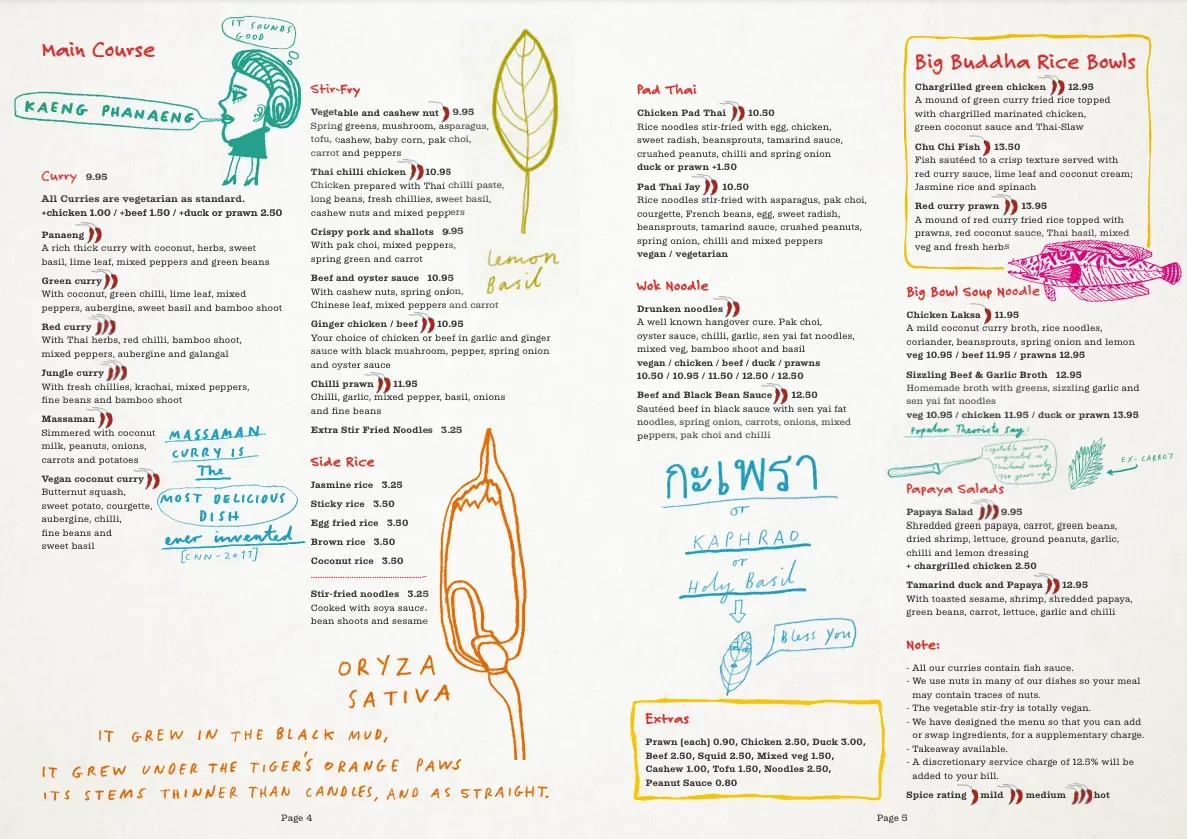 Main Course
IT SOUNDS
GOOD
KAENG PHANAENG
Curry 9.95
All Curries are vegetarian as standard.
+chicken 1.00 / +beef 1.50 / +duck or prawn 2.50
Panaeng
A rich thick curry with coconut, herbs, sweet
basil, lime leaf, mixed peppers and green beans
Green curry
With coconut, green chilli, lime leaf, mixed
peppers, aubergine, sweet basil and bamboo shoot
Red curry
With Thai herbs, red chilli, bamboo shoot,
mixed peppers, aubergine and galangal
Jungle curry
With fresh chillies, krachai, mixed peppers,
fine beans and bamboo shoot
Massaman
Simmered with coconut
milk, peanuts, onions,
carrots and potatoes
Vegan coconut curry
Butternut squash,
sweet potato, courgette,
aubergine, chilli,
fine beans and
sweet basil
MASSAMAN
CURRY IS
The
MOST DELICIOUS
DISH
ever invented
[CNN-2011]
Stir-Fry
Vegetable and cashew nut 9.95
Spring greens, mushroom, asparagus,
tofu, cashew, baby corn, pak choi,
carrot and peppers
Thai chilli chicken 10.95
Chicken prepared with Thai chilli paste,
long beans, fresh chillies, sweet basil,
cashew nuts and mixed peppers
Crispy pork and shallots 9.95
With pak choi, mixed peppers,
spring green and carrot
Beef and oyster sauce 10.95
With cashew nuts, spring onion,
Chinese leaf, mixed peppers and carrot
Ginger chicken / beef 10.95
Your choice of chicken or beef in garlic and ginger
sauce with black mushroom, pepper, spring onion
and oyster sauce
Chilli prawn 11.95
Chilli, garlic, mixed pepper, basil, onions
and fine beans
Extra Stir Fried Noodles 3.25
lemon
Basil
Side Rice
Jasmine rice 3.25
Sticky rice 3.50
Egg fried rice 3.50
Brown rice 3.50
Coconut rice 3.50
Stir-fried noodles 3.25
Cooked with soya sauce,
bean shoots and sesame
ORYZA
SATIVA
IT GREW IN THE BLACK MUD,
IT GREW UNDER THE TIGER'S ORANGE PAWS
ITS STEMS THINNER THAN CANDLES, AND AS STRAIGHT.
Page 4
Pad Thai
Chicken Pad Thai 10.50
Rice noodles stir-fried with egg, chicken,
sweet radish, beansprouts, tamarind sauce,
crushed peanuts, chilli and spring onion
duck or prawn +1.50
Pad Thai Jay 10.50
Rice noodles stir-fried with asparagus, pak choi,
courgette, French beans, egg, sweet radish,
beansprouts, tamarind sauce, crushed peanuts,
spring onion, chilli and mixed peppers
vegan / vegetarian
Wok Noodle
Drunken noodles
A well known hangover cure. Pak choi,
oyster sauce, chilli, garlic, sen yai fat noodles,
mixed veg, bamboo shoot and basil
vegan / chicken / beef / duck / prawns
10.50 / 10.95 / 11.50 / 12.50 / 12.50
Beef and Black Bean Sauce 12.50
Sautéed beef in black sauce with sen yai fat
noodles, spring onion, carrots, onions, mixed
peppers, pak choi and chilli
กะเพรา
or
KAPHRAO
or
Holy Basil
Bless You
Extras
Prawn (each) 0.90, Chicken 2.50, Duck 3.00,
Beef 2.50, Squid 2.50, Mixed veg 1.50,
Cashew 1.00, Tofu 1.50, Noodles 2.50,
Peanut Sauce 0.80
Big Buddha Rice Bowls
Chargrilled green chicken 12.95
A mound of green curry fried rice topped
with chargrilled marinated chicken,
green coconut sauce and Thai-Slaw
Chu Chi Fish 13.50
Fish sautéed to a crisp texture served with
red curry sauce, lime leaf and coconut cream;
Jasmine rice and spinach
Red curry prawn 13.95
A mound of red curry fried rice topped with
prawns, red coconut sauce, Thai basil, mixed
veg and fresh herbs
Big Bowl Soup Noodle
Chicken Laksa 11.95
A mild coconut curry broth, rice noodles,
coriander, beansprouts, spring onion and lemon
veg 10.95 / beef 11.95 / prawns 12.95
Sizzling Beef & Garlic Broth 12.95
Homemade broth with greens, sizzling garlic and
sen yai fat noodles
veg 10.95 / chicken 11.95 / duck or prawn 13.95
Popular Theorists Say:
Vegetable carving
originated in
Thailand nearly
700 years ago
EX-CARROT
Papaya Salads
Papaya Salad 9.95
Shredded green papaya, carrot, green beans,
dried shrimp, lettuce, ground peanuts, garlic,
chilli and lemon dressing
+ chargrilled chicken 2.50
Tamarind duck and Papaya 12.95
With toasted sesame, shrimp, shredded papaya,
green beans, carrot, lettuce, garlic and chilli
Note:
- All our curries contain fish sauce.
- We use nuts in many of our dishes so your meal
may contain traces of nuts.
- The vegetable stir-fry is totally vegan.
- We have designed the menu so that you can add
or swap ingredients, for a supplementary charge.
- Takeaway available.
- A discretionary service charge of 12.5% will be
added to your bill.
Spice rating mild medium hot
Page 5